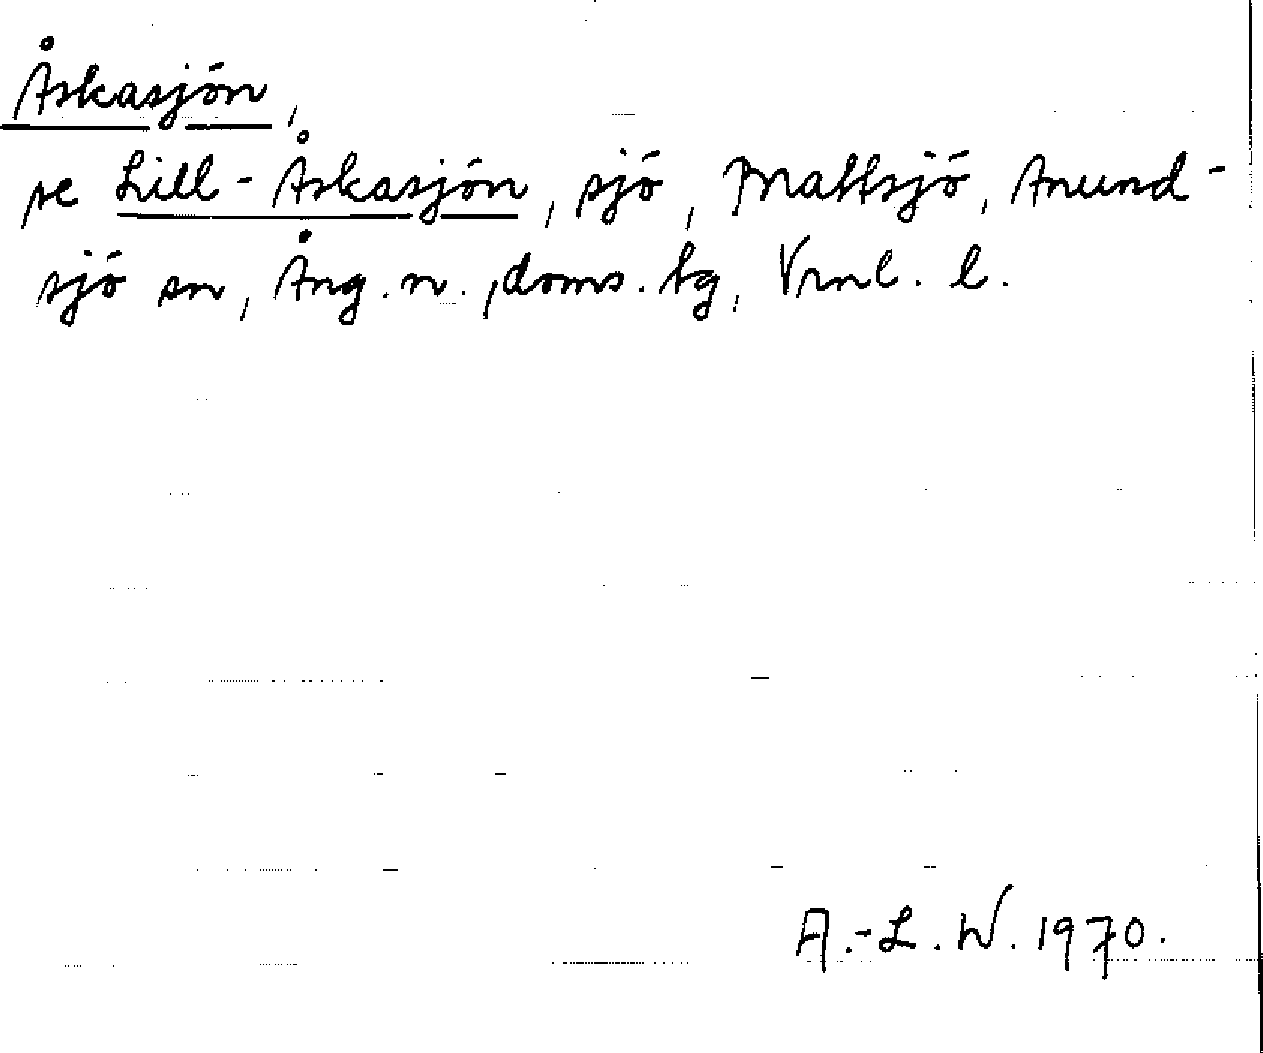 Åskasjön,
se Lill-Åskasjön, sjö, Mattsjö, Anund-
sjö sn, Ång. n., doms. tg, Vrnl. l.
A.-L. W. 1970.